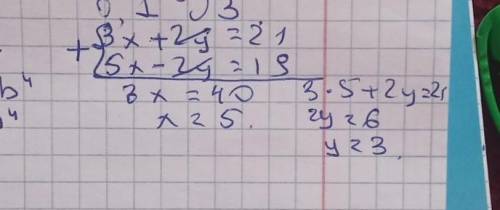 0 1 0 3
+ 3x + 2y = 21
5x - 2y = 19
3x = 40
x = 5.
3 · 5 + 2y = 21
2y = 6
y = 3.
b⁴